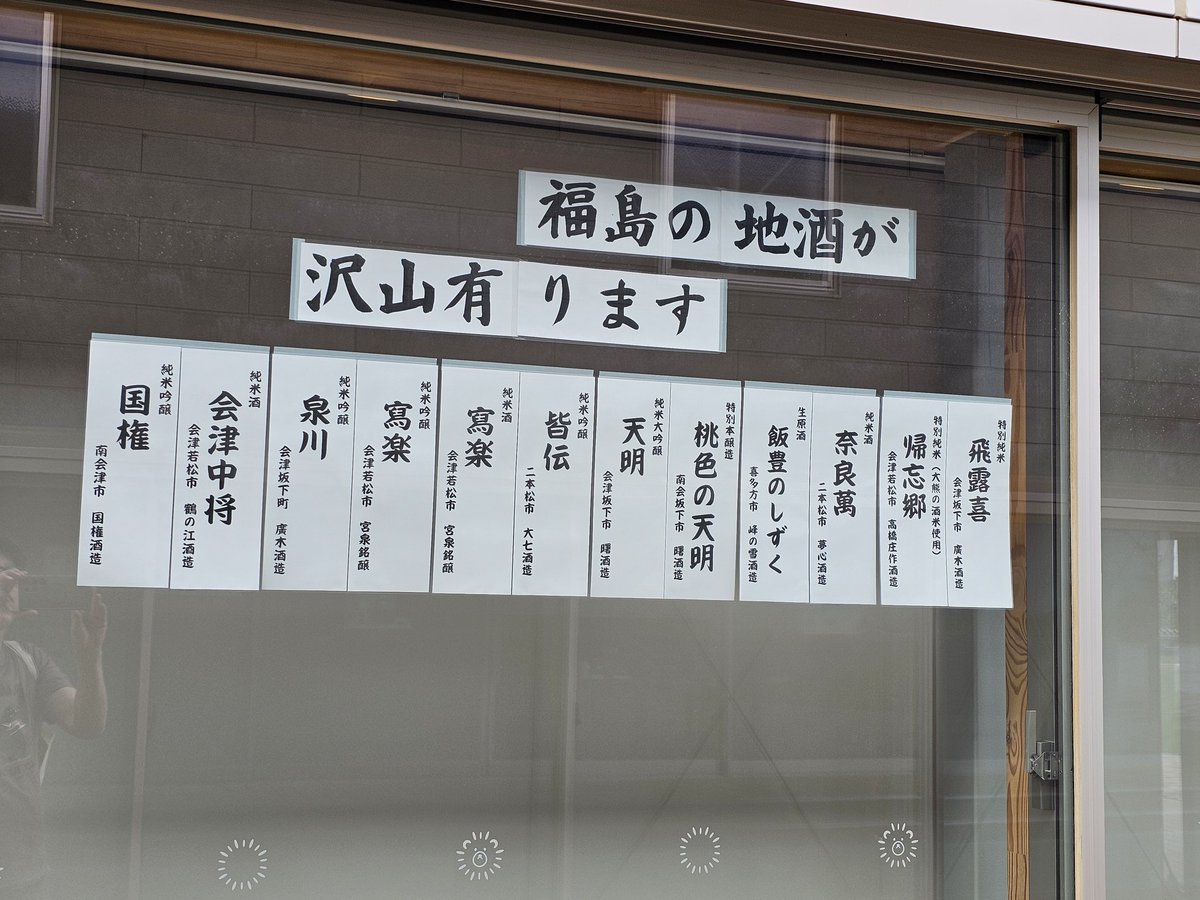 福島の地酒が
沢山有ります
特別純米
飛露喜
会津坂下市 廣木酒造
特別純米(大熊の酒米使用)
帰忘郷
会津若松市 高橋庄作酒造
純米酒
奈良萬
二本松市 夢心酒造
生原酒
飯豊のしずく
喜多方市 峰の雪酒造
特別本醸造
桃色の天明
南会坂下市 曙酒造
純米大吟醸
天明
会津坂下市 曙酒造
純米吟醸
皆伝
二本松市 大七酒造
純米酒
寫楽
会津若松市 宮泉銘醸
純米吟醸
寫楽
会津若松市 宮泉銘醸
純米吟醸
泉川
会津坂下町 廣木酒造
純米酒
会津中将
会津若松市 鶴の江酒造
純米吟醸
国権
南会津市 国権酒造